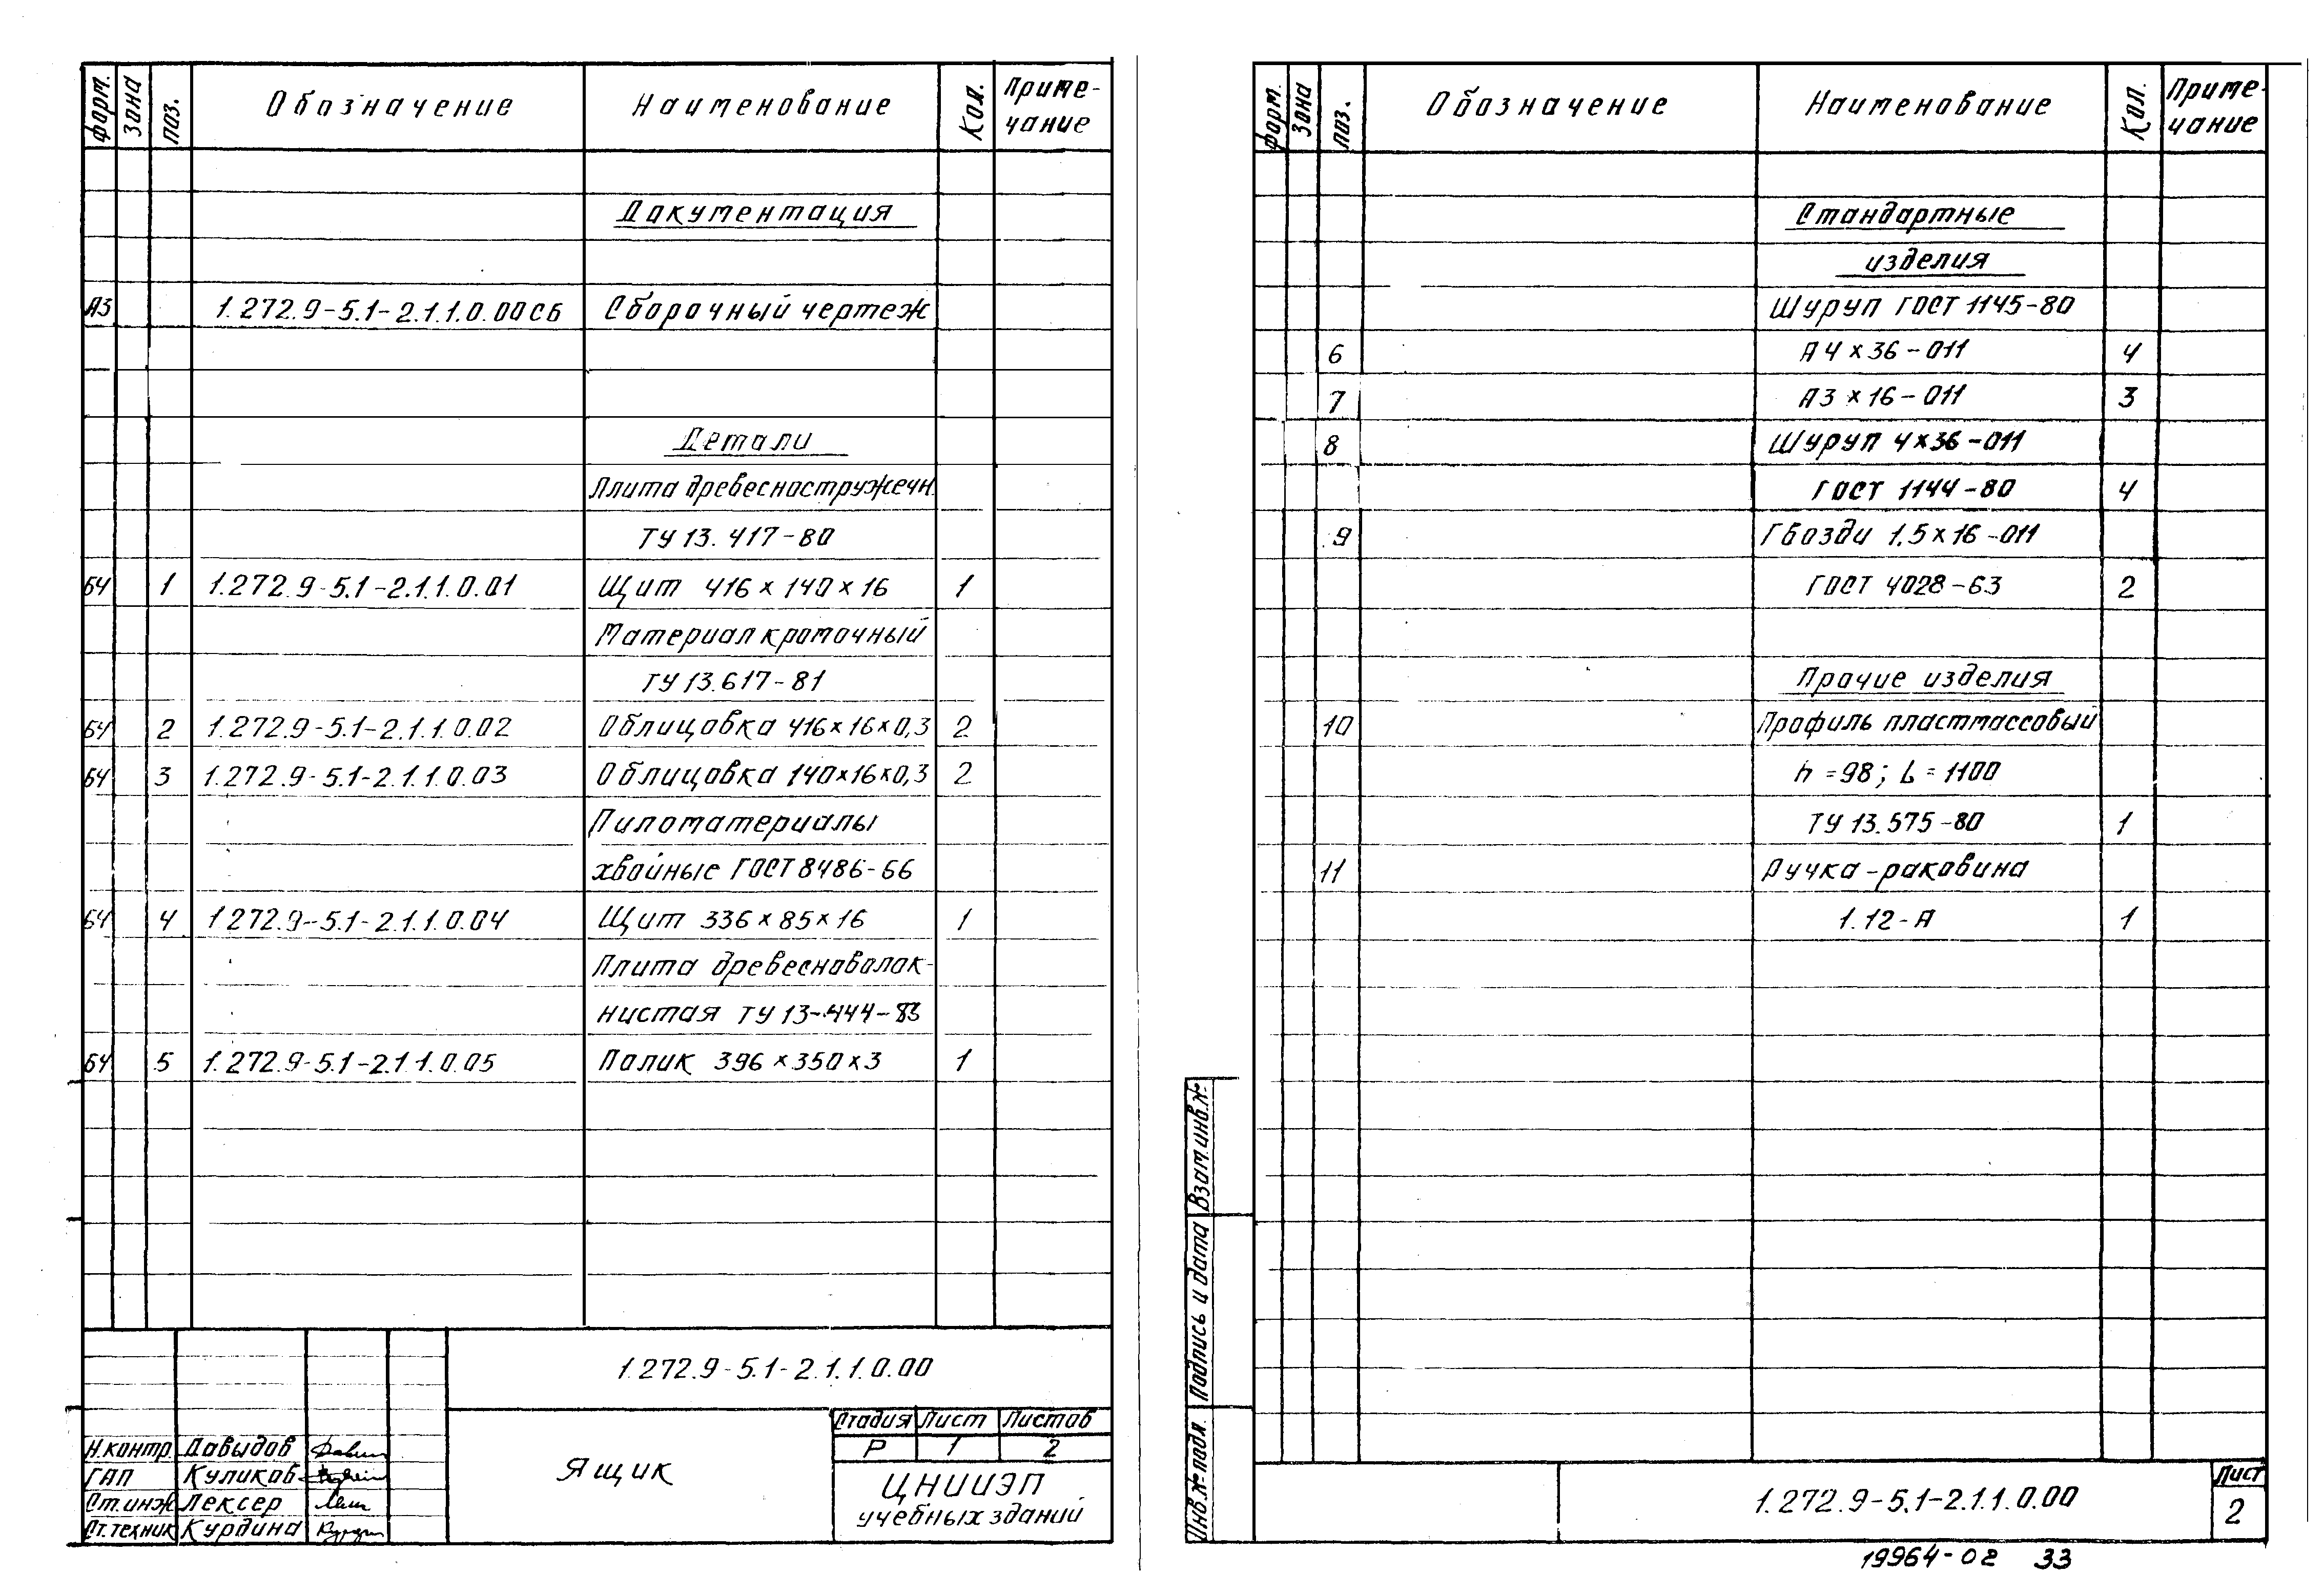 Форм. Зона Поз. Обозначение Наименование Кол. Приме-
чание
Документация
А3 1.272.9-5.1-2.1.1.0.00СБ Сборочный чертеж
Детали
Плита древесностружечн.
ТУ 13.417-80
БЧ 1 1.272.9-5.1-2.1.1.0.01 Щит 416×140×16 1
Материал кромочный
ТУ 13.617-81
БЧ 2 1.272.9-5.1-2.1.1.0.02 Облицовка 416×16×0,3 2
БЧ 3 1.272.9-5.1-2.1.1.0.03 Облицовка 140×16×0,3 2
Пиломатериалы
хвойные ГОСТ 8486-66
БЧ 4 1.272.9-5.1-2.1.1.0.04 Щит 336×85×16 1
Плита древесноволок-
нистая ТУ 13-444-83
БЧ 5 1.272.9-5.1-2.1.1.0.05 Полик 396×350×3 1
1.272.9-5.1-2.1.1.0.00
Стадия Лист Листов
Р 1 2
Н.контр. Давыдов
ГАП Куликов
Ст.инж Лексер
Ст.техник Курдина
Ящик
ЦНИИЭП
учебных зданий
Форм. Зона Поз. Обозначение Наименование Кол. Приме-
чание
Стандартные
изделия
Шуруп ГОСТ 1145-80
6 А4×36-011 4
7 А3×16-011 3
8 Шуруп 4×36-011
ГОСТ 1144-80 4
9 Гвозди 1,5×16-011
ГОСТ 4028-63 2
Прочие изделия
10 Профиль пластмассовый
h=98; L=1100
ТУ 13.575-80 1
11 Ручка-раковина
1.12-А 1
Взам.инв.№
Подпись и дата
Инв.№ подл.
1.272.9-5.1-2.1.1.0.00
Лист
2
19964-02 33